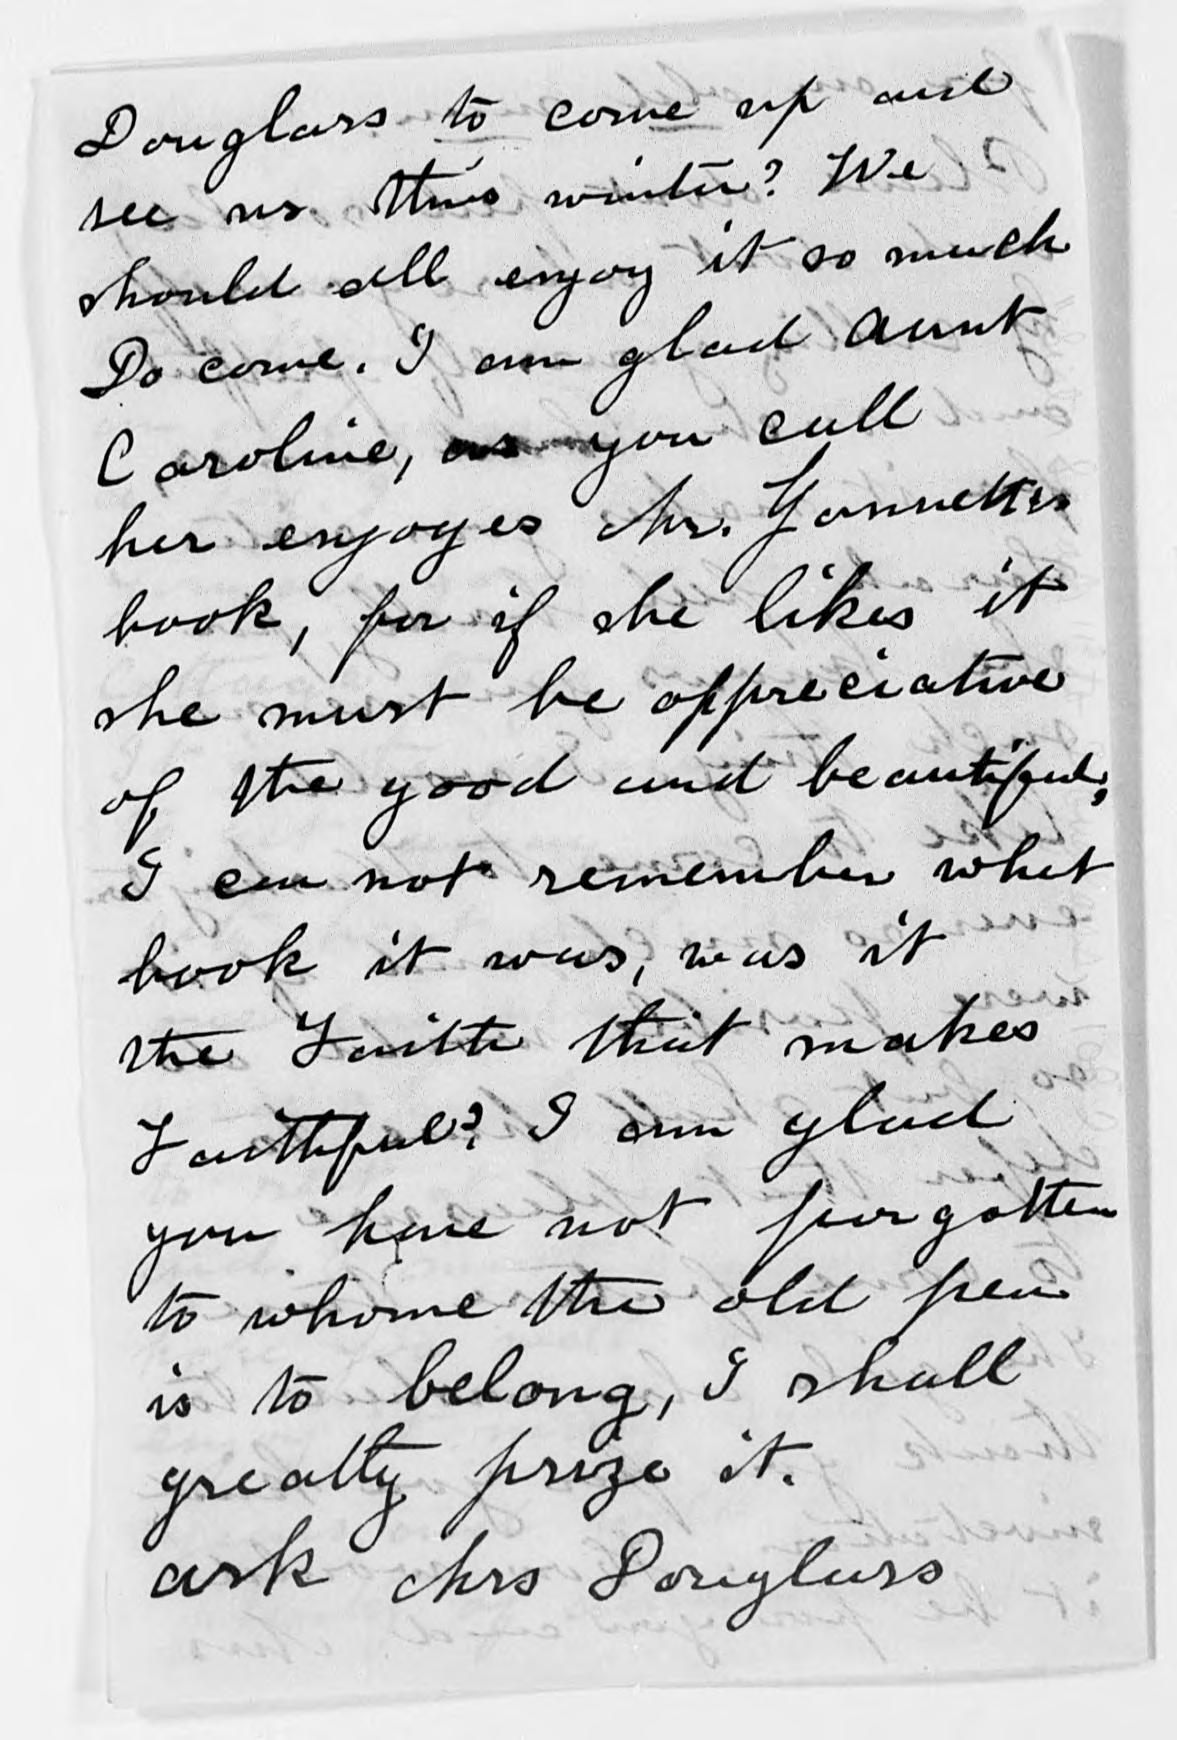 Douglass to come up and
see us this winter? We
should all enjoy it so much
Do come. I am glad Aunt
Caroline, as you call
her enjoyes Mr.
book, for if she likes it
she must be appreciative
of the good and beautiful,
I can not remember what
book it was, was it
the Faith that makes
Faithful? I am glad
you have not forgotten
to whome the old pen
is to belong, I shall
greatly prize it.
ask Mrs Douglass